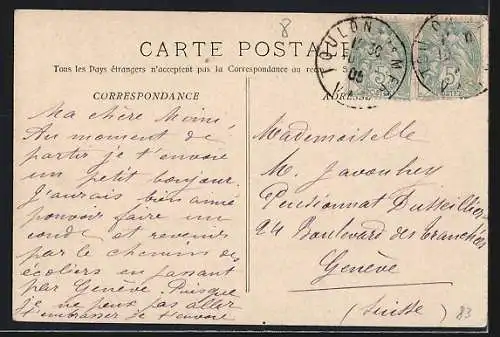 8
CARTE POSTALE
Tous les Pays étrangers n'acceptent pas la Correspondance au
CORRESPONDANCE
ADRESSE
TOULON
Ma chère Mimi,
Au moment de
partir je t'envoie
un petit bonjour.
J'aurais bien aimé
pouvoir faire un
et revenir
par le chemin des
écoliers en passant
par Genève. Puisque
je ne peux pas aller
t'embrasser je t'envoie
Mademoiselle
M. Javouhey
Pensionnat
24 Boulevard des Tranchées
Genève
(Suisse)
83